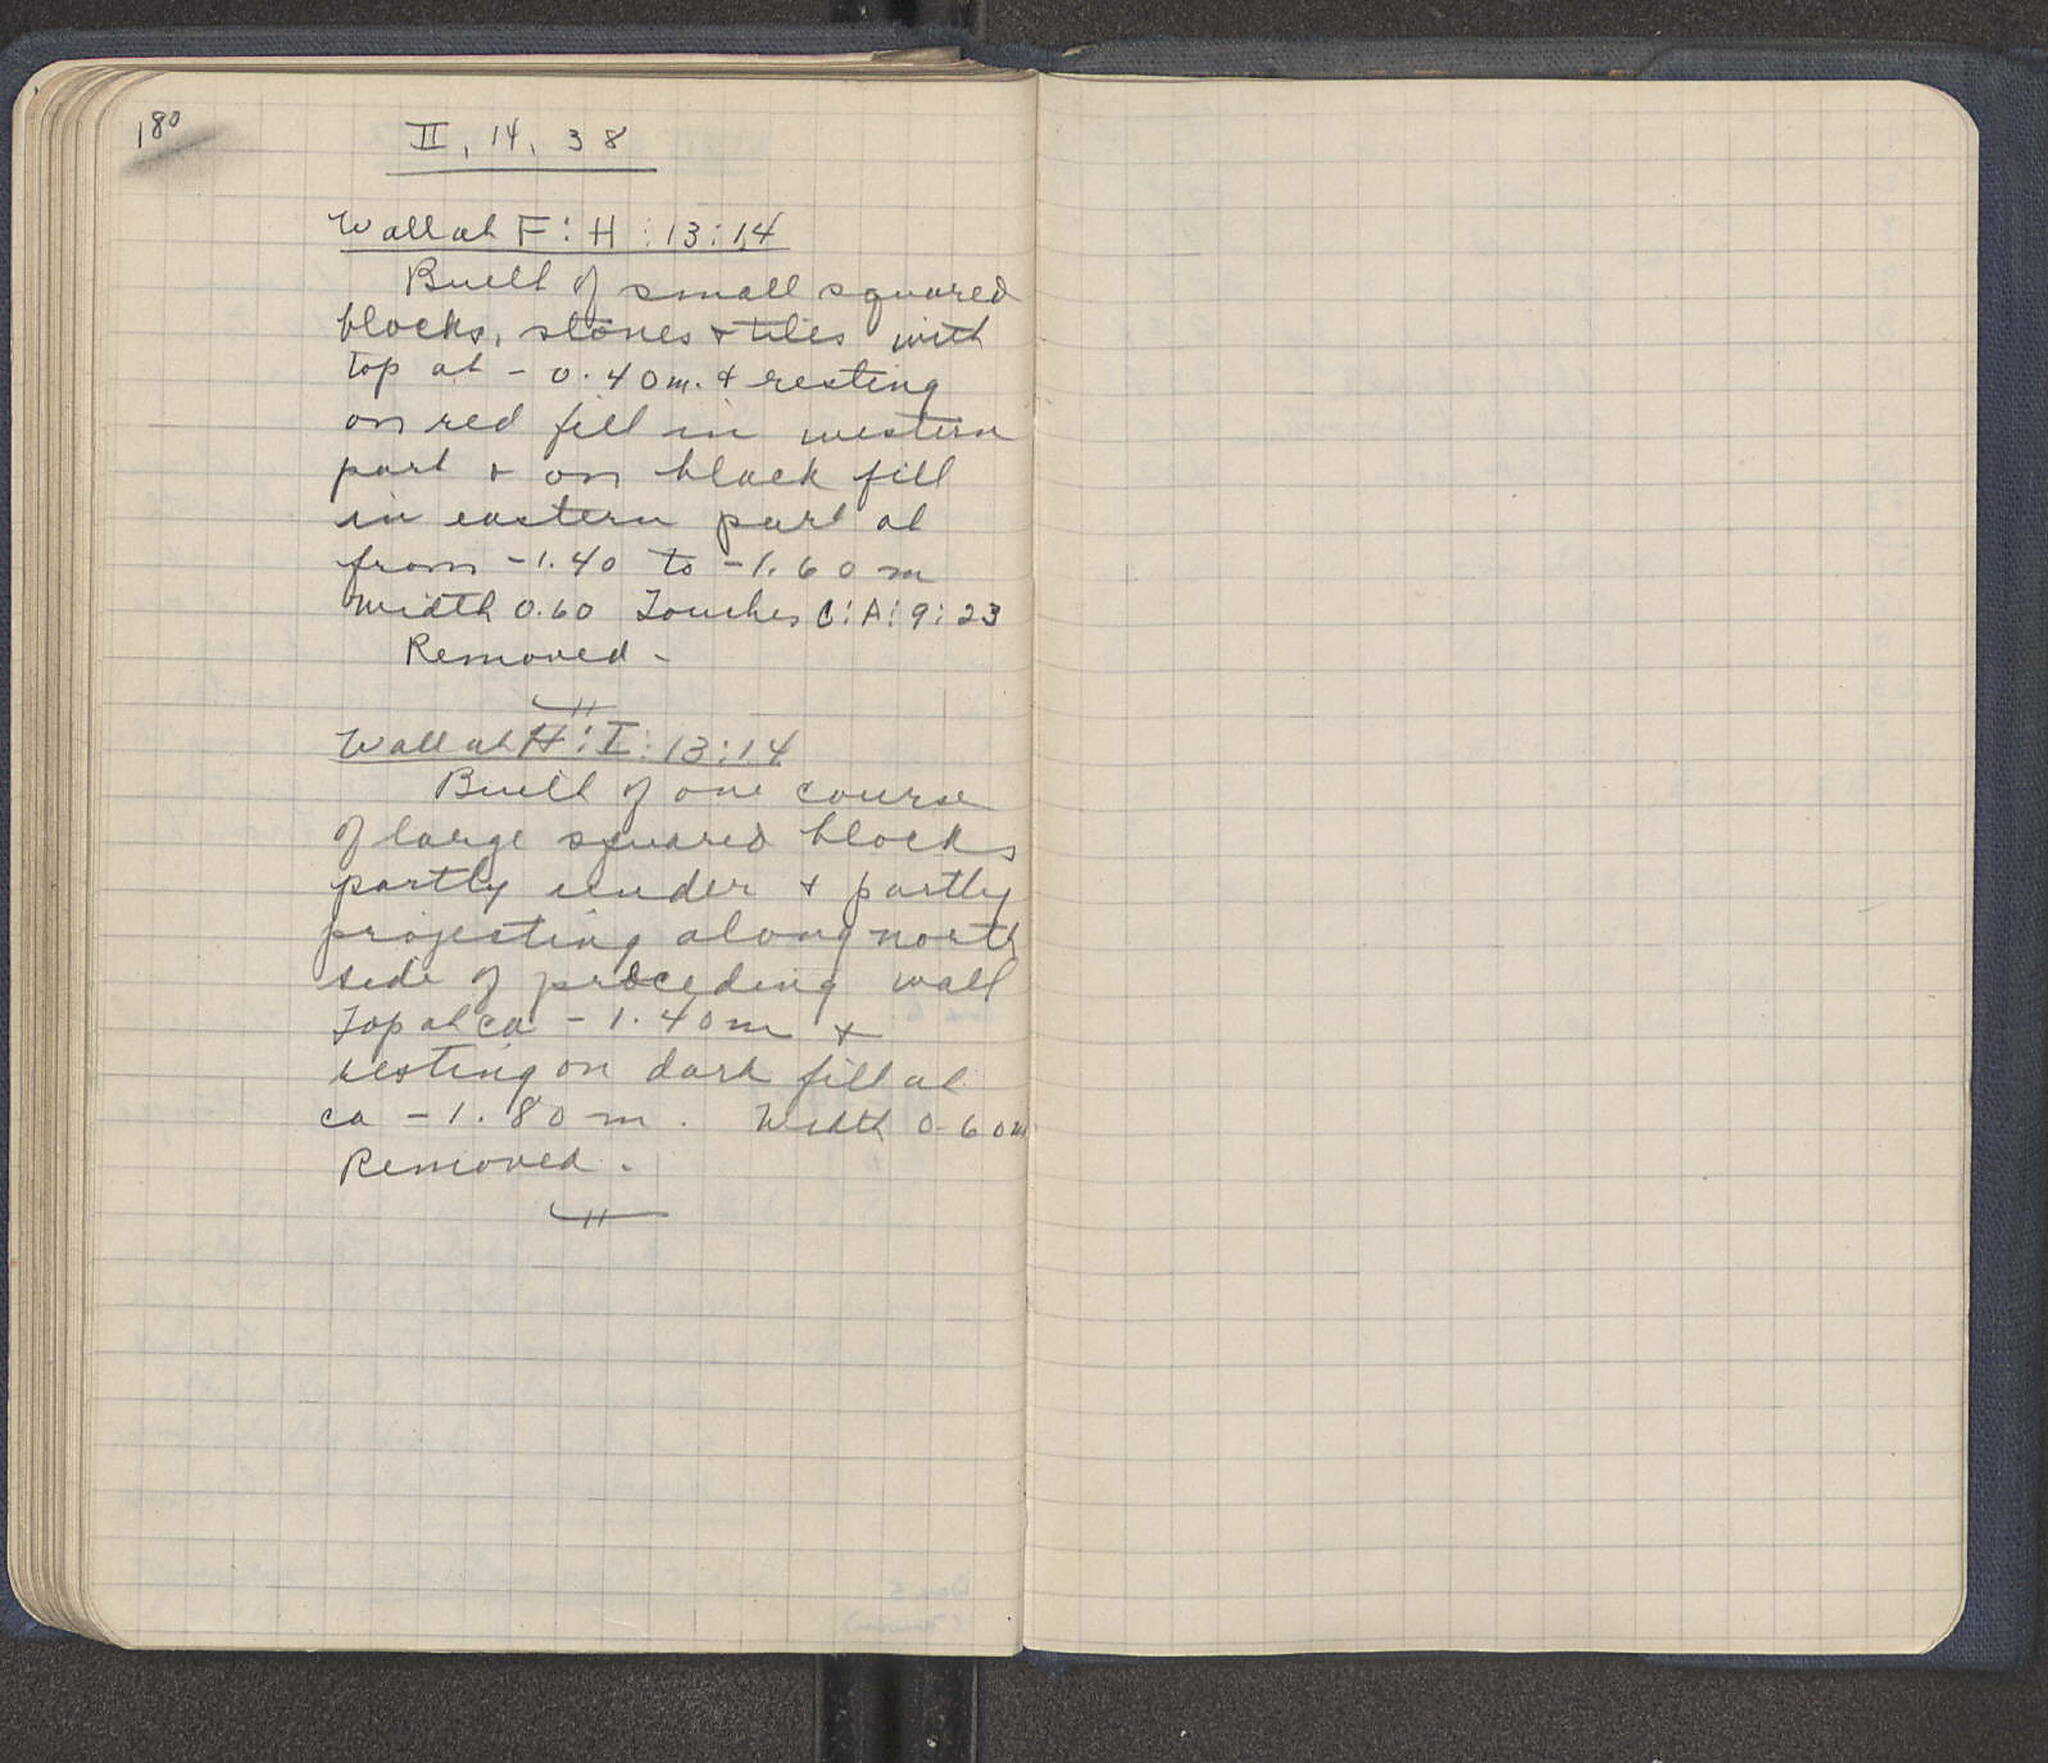 180
II, 14, 38
Wall at F:H:13:14
Built of small squared
blocks, stones & tiles with
top at - 0.40m. & resting
on red fill in western
part & on black fill
in eastern part at
from -1.40 to -1.60 m
Width 0.60 Touches C:A:9:23
Removed -
Wall at H:I:13:14
Built of one course
of large squared blocks
partly under & partly
projecting along north
side of preceding wall
Top at ca - 1.40m &
resting on dark fill at
ca - 1.80 m. Width 0.60m
Removed.